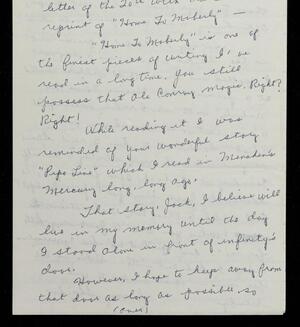 letter of the 20th
reprint of "Home To Moberly" —
"Home To Moberly" is one of
the finest pieces of writing I've
read in a long time. You still
possess that Ole Conroy magic. Right?
Right!
While reading it I was
reminded of your wonderful story
"Pipe Line" which I read in Mencken's
Mercury long, long ago.
That story, Jack, I believe will
live in my memory until the day
I stood alone in front of infinity's
door.
However, I hope to keep away from
that door as long as possible, so
(over)